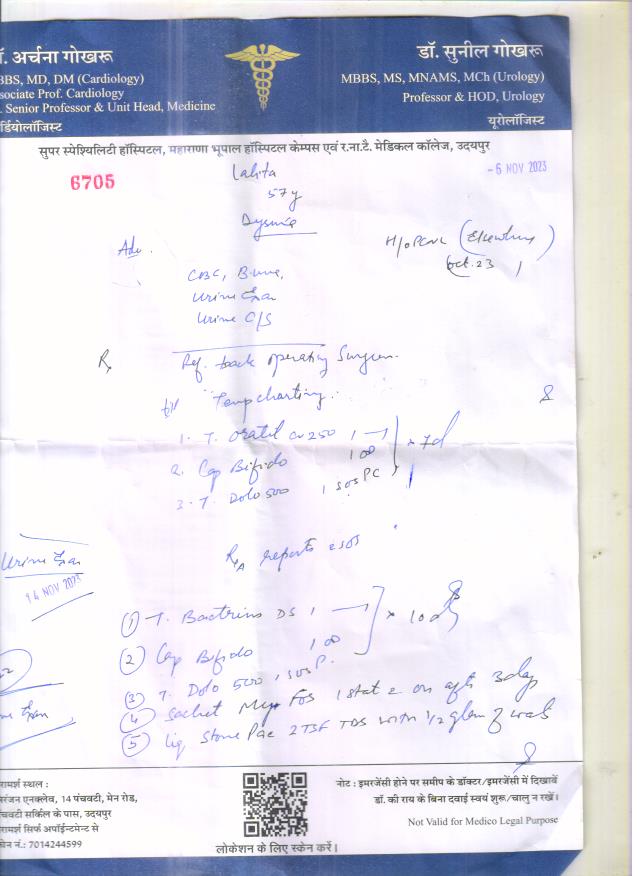 ॉ. अर्चना गोखरू
BBS, MD, DM (Cardiology)
sociate Prof. Cardiology
. Senior Professor & Unit Head, Medicine
र्डियोलॉजिस्ट
डॉ. सुनील गोखरू
MBBS, MS, MNAMS, MCh (Urology)
Professor & HOD, Urology
यूरोलॉजिस्ट
सुपर स्पेश्यिलिटी हॉस्पिटल, महाराणा भूपाल हॉस्पिटल केम्पस एवं र.ना.टै. मेडिकल कॉलेज, उदयपुर
6705
Lalita
- 6 NOV 2023
57 y
Dysuria
H/o PCNL (Elsewhere)
Oct. 23
Adv.
CBC,
Urine
Urine C/S
Rx
Ref. back operating Surgeon.
Temp charting.
1. T. Oratil CV 250 1
2. Cap Bifido 1 OD
x 7d
3. T. Dolo 500 1 SOS PC
reports
Urine
14 NOV 2023
① T. Bactrim DS 1
x 10d
② Cap Bifido 1 OD
③ T. Dolo 500 1 SOS P.
④ Sachet Fos 1 stat 2 on aft 3 day
⑤ Liq Stone 2 TSF TDS with 1/2 glass of wat
रामर्श स्थल :
रंजन एनक्लेव, 14 पंचवटी, मेन रोड,
चवटी सर्किल के पास, उदयपुर
रामर्श सिर्फ अपॉईन्टमेन्ट से
ोन नं.: 7014244599
लोकेशन के लिए स्केन करें।
नोट : इमरजेंसी होने पर समीप के डॉक्टर/इमरजेंसी में दिखावें
डॉ. की राय के बिना दवाई स्वयं शुरू/चालु न रखें।
Not Valid for Medico Legal Purpose